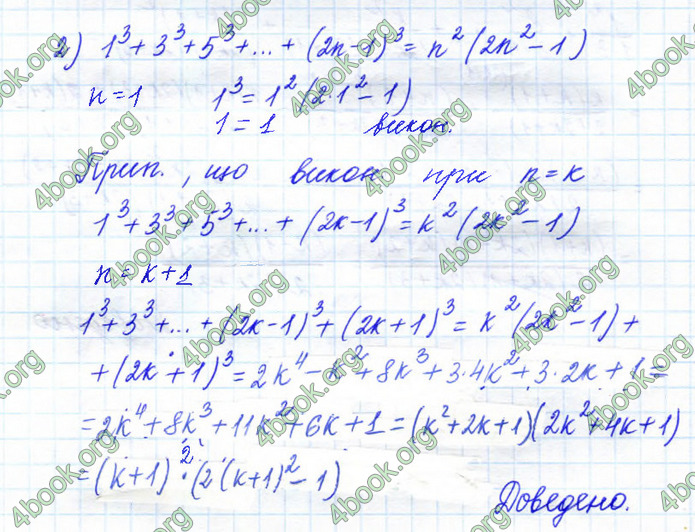 2) 1³ + 3³ + 5³ + ... + (2n-1)³ = n² (2n² - 1)
n = 1 1³ = 1² (2·1² - 1)
1 = 1 викон.
Прип., що викон при n = k
1³ + 3³ + 5³ + ... + (2k-1)³ = k² (2k² - 1)
n = k + 1
1³ + 3³ + ... + (2k-1)³ + (2k+1)³ = k² (2k² - 1) +
+ (2k + 1)³ = 2k⁴ - k² + 8k³ + 3·4k² + 3·2k + 1 =
= 2k⁴ + 8k³ + 11k² + 6k + 1 = (k² + 2k + 1)(2k² + 4k + 1)
= (k+1)² · (2(k+1)² - 1)
Доведено.
4book.org